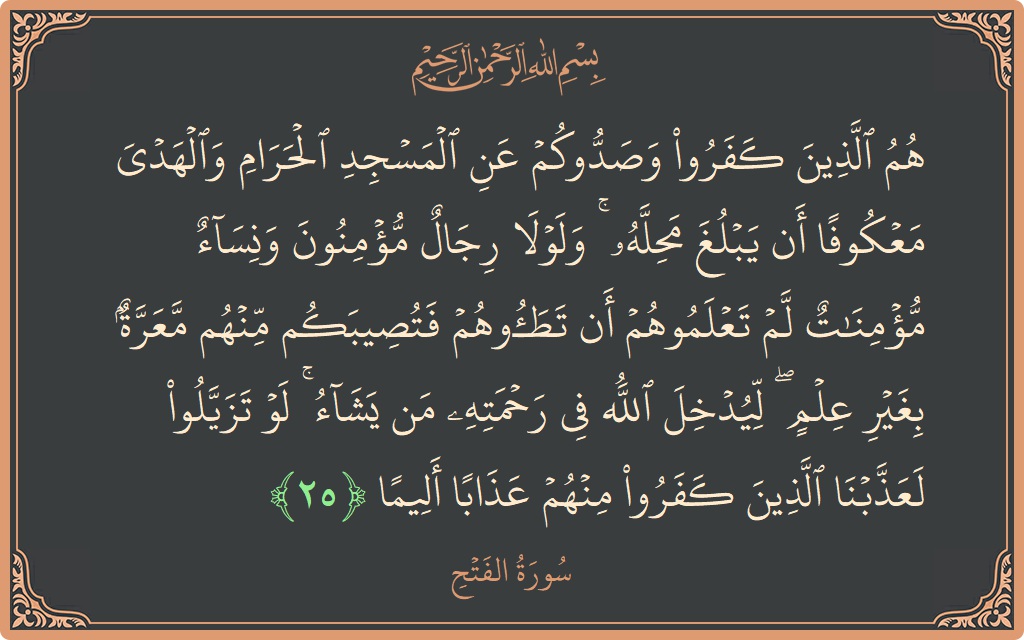 بِسْمِ اللَّهِ الرَّحْمَٰنِ الرَّحِيمِ
هُمُ ٱلَّذِينَ كَفَرُوا۟ وَصَدُّوكُمْ عَنِ ٱلْمَسْجِدِ ٱلْحَرَامِ وَٱلْهَدْىَ
مَعْكُوفًا أَن يَبْلُغَ مَحِلَّهُۥ ۚ وَلَوْلَا رِجَالٌ مُّؤْمِنُونَ وَنِسَآءٌ
مُّؤْمِنَـٰتٌ لَّمْ تَعْلَمُوهُمْ أَن تَطَـُٔوهُمْ فَتُصِيبَكُم مِّنْهُم مَّعَرَّةٌۢ
بِغَيْرِ عِلْمٍ ۖ لِّيُدْخِلَ ٱللَّهُ فِى رَحْمَتِهِۦ مَن يَشَآءُ ۚ لَوْ تَزَيَّلُوا۟
لَعَذَّبْنَا ٱلَّذِينَ كَفَرُوا۟ مِنْهُمْ عَذَابًا أَلِيمًا ﴿٢٥﴾
سُورَةُ الفَتْحِ